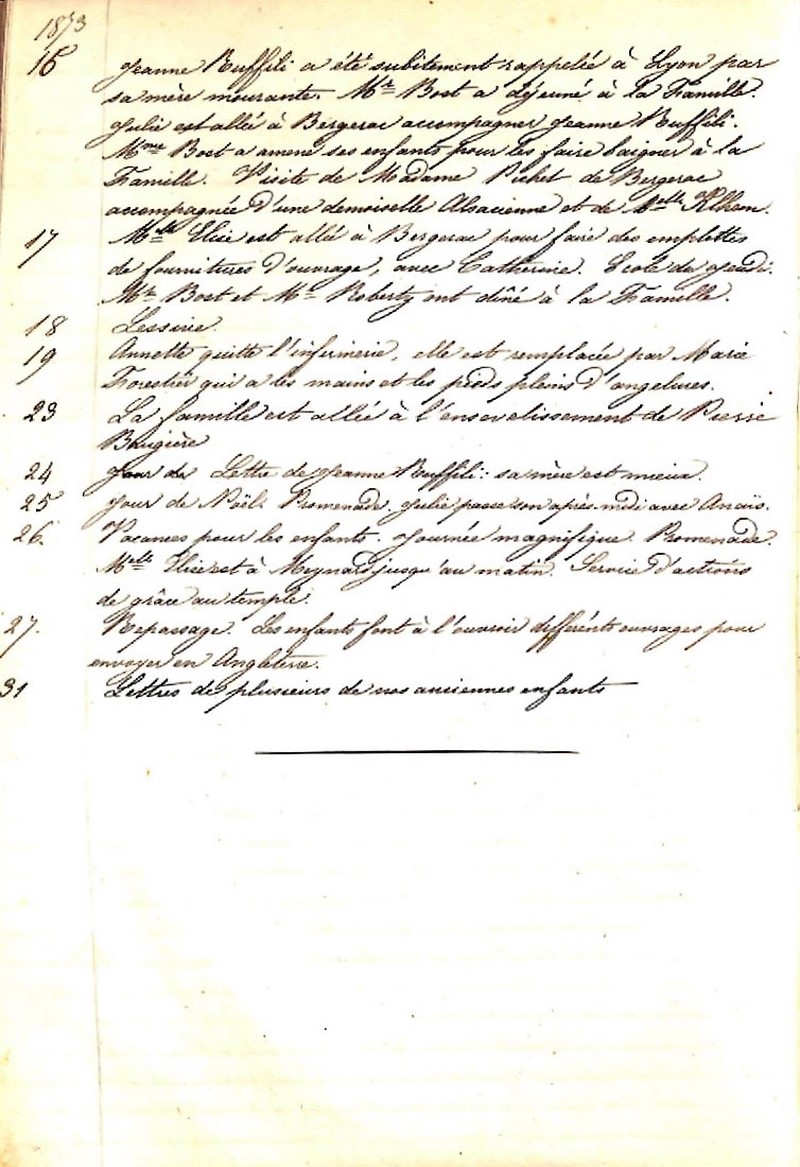 1873
16 Jeanne Ruffili a été subitement rappelée à Lyon par
sa mère mourante. Mr Bost a déjeuné à la Famille.
Julie est allée à Bergerac accompagner Jeanne Ruffili.
Mme Bost a amené ses enfants pour les faire baigner à la
Famille. Visite de Madame Pichet de Bergerac
accompagnée d'une demoiselle Alsacienne et de Melle
17 Melle Elise est allée à Bergerac pour faire des emplettes
de fournitures d'ouvrage, avec Catherine. Ecole de Jeudi.
Mr Bost et Mr Roberty ont dîné à la Famille.
18 Lessive.
19 Annette quitte l'infirmerie, elle est remplacée par Marie
Forestier qui a les mains et les pieds pleins d'angelures.
23 La famille est allée à l'ensevelissement de Pierre
Brugière
24 Jour de Lettre de Jeanne Ruffili: sa mère est mieux.
25 Jour de Noël. Promenade. Julie passe son après-midi avec Anaïs.
26. Vacances pour les enfants. Journée magnifique. Promenade.
Melle Elise est à Meynard jusqu'au matin. Service d'actions
de grâce au temple.
27. Repassage. Les enfants font à l'ouvroir différents ouvrages pour
envoyer en Angleterre.
31 Lettres de plusieurs de nos anciennes enfants